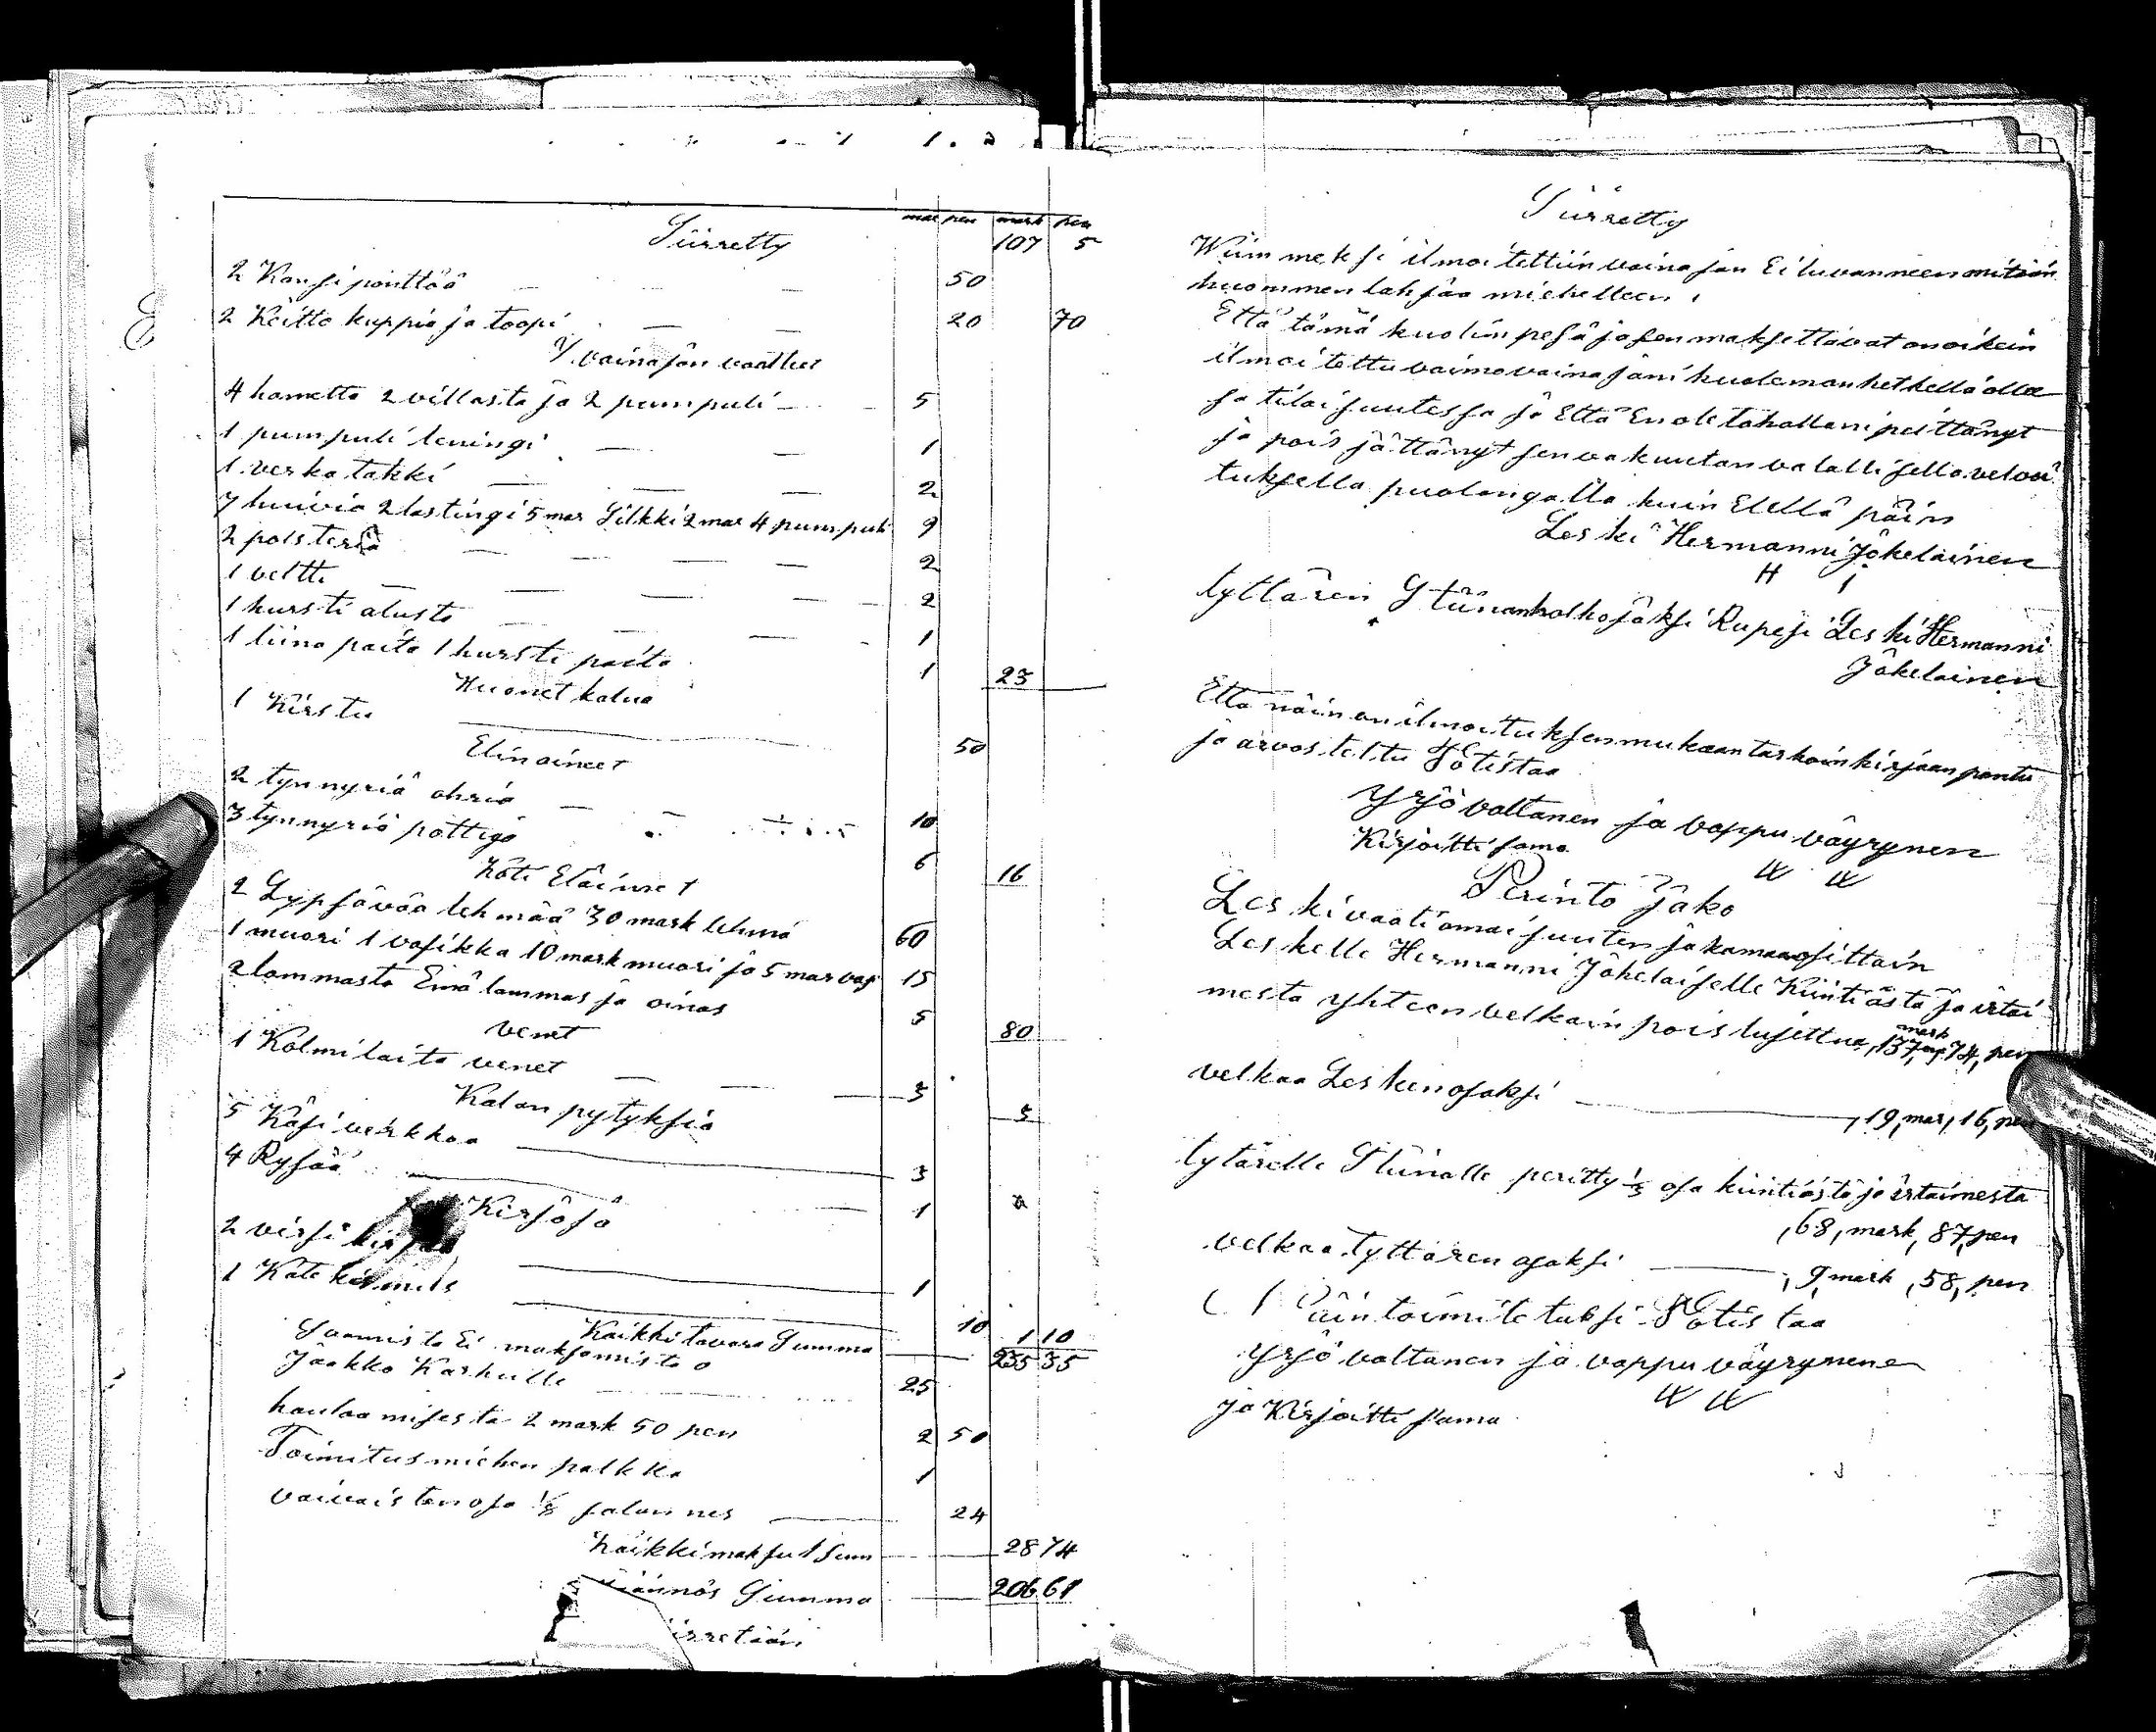 mar pen mark pen
Siirretty 107 5
2 Kansi pönttöä — — 50
2 Keitto kuppia ja toopi — — 20 70
vainajan vaatteet
4 hametta 2 villasta ja 2 pumpuli — 5
1 pumpuli leningi — — 1
1 verka takki — — — 2
7 huivia 2 lastingi 5 mar Silkki 2 mar 4 pumpuli 9
2 polsteria — — — 2
1 veltti — — — — 2
1 hursti alusta — — — 1
1 liina paita 1 hursti paita 1 23
Huonet kalua
1 Kirstu 50
Elinaineet
2 tynnyriä ohria — 10
3 tynnyriä pottigo 6 16
Koti Eläimet
2 Lypsävää lehmää 30 mark lehmä 60
1 muori 1 vasikka 10 mark muori ja 5 mar vas 15
2 lammasta Emä lammas ja oinas 5 80
venet
1 Kolmilaita venet — — 3 3
Kalan pytyksiä
5 Käsi verkkoa 3
4 Rysää 1
Kirjoja
2 virsi kirjaa 1
1 Katekismus 10 1 10
Kaikki tavara Summa 235 35
Saamista Ei maksamista 0
Jaakko Karhulle 25
hautaamisesta 2 mark 50 pen 2 50
Toimitusmiehen palkka 1
vaivaisten osa 1/8 salan nes 24
Kaikki maksut Sum 28 74
Jäännös Summa 206 61
Siirretään
Siirretty
Wiimmeksi ilmoitettiin vainajan Ei luvanneen mitään
huommen lahjaa miehelleen,
Että tämä kuolin pesä josen maksettavat on oikein
ilmoitettu vaimovainajani kuoleman hetkellä olle
sa tilaisuutessa ja Että En ole tahallani peittänyt
ja pois jättänyt sen vakuutan valallisella velvoi
tuksella puolongalla kuin Elellä päin
Leski Hermanni Jokelainen
H i
tyttären Stiinan holhojaksi Rupesi Leski Hermanni
Jokelainen
Että näin on ilmoituksen mukaan tarkoin kirjaan pantu
ja arvosteltu Totistaa
Yrjö valtanen ja vappu väyrynen
Kirjoitti sama
Perinto Jako
Leski vaati omaisuuten jakamaa osittain
Leskelle Hermanni Jokelaiselle Kiintiästä ja irtai
mesta yhteen velkain pois lujettua, 137, mark 74, pen
velkaa Lesken osaksi — , 19, mar, 16, pen
tytärelle Stiinalle peritty 1/3 osa kiintiästä ja irtaimesta
, 68, mark, 87, pen
velkaa Tyttären osaksi — , 9, mark, 58, pen
Näin toimitetuksi Totistaa
Yrjö valtanen ja vappu väyrynen
ja Kirjoitti sama